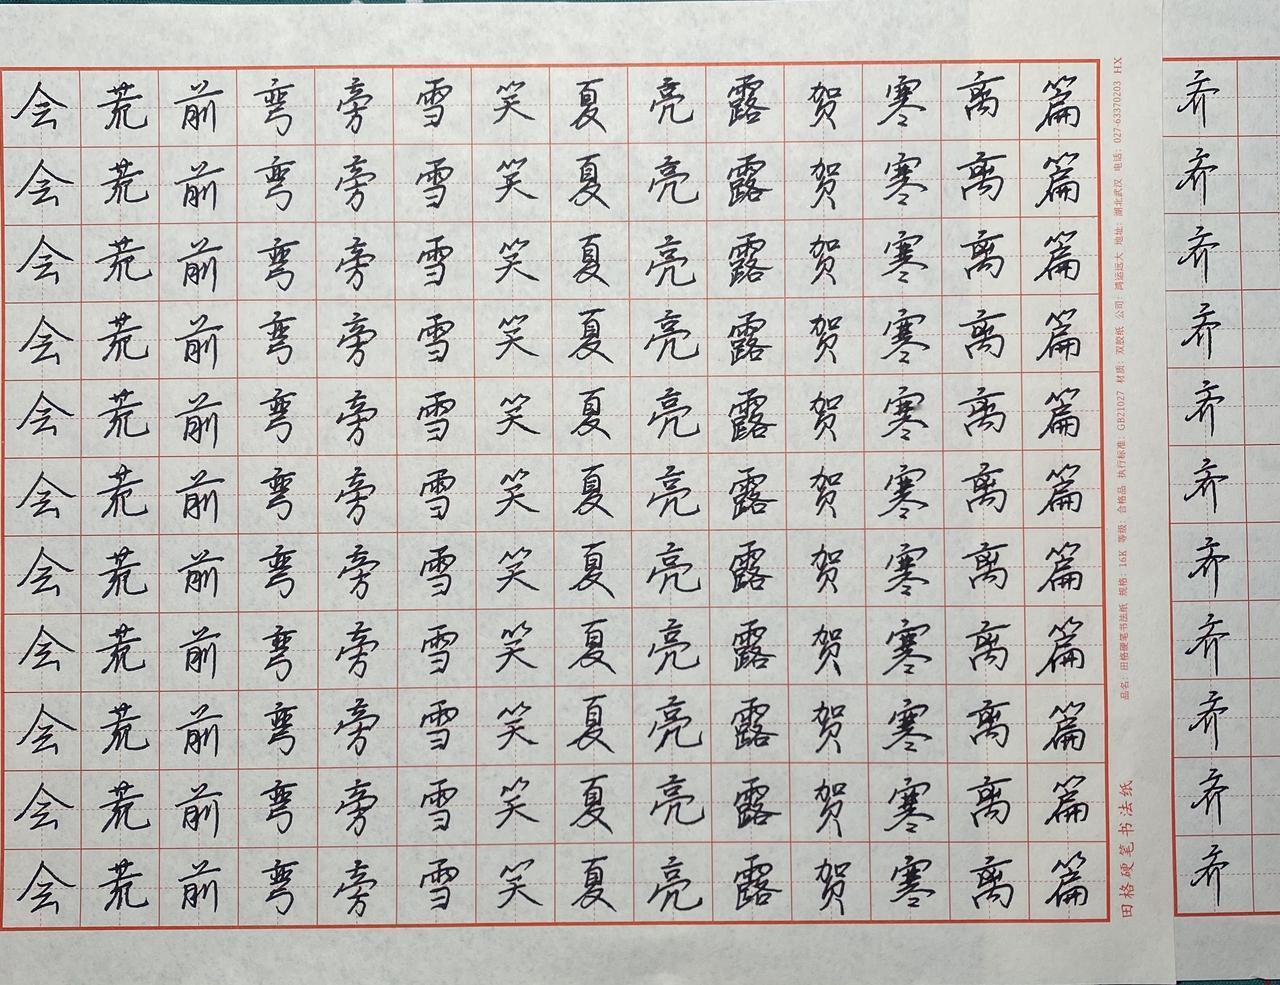 会荒前弯旁雪笑夏亮露贺寒离篇
会荒前弯旁雪笑夏亮露贺寒离篇
会荒前弯旁雪笑夏亮露贺寒离篇
会荒前弯旁雪笑夏亮露贺寒离篇
会荒前弯旁雪笑夏亮露贺寒离篇
会荒前弯旁雪笑夏亮露贺寒离篇
会荒前弯旁雪笑夏亮露贺寒离篇
会荒前弯旁雪笑夏亮露贺寒离篇
会荒前弯旁雪笑夏亮露贺寒离篇
会荒前弯旁雪笑夏亮露贺寒离篇
会荒前弯旁雪笑夏亮露贺寒离篇
田格硬笔书法纸
品名：田格硬笔书法纸 规格：16K 等级：合格品 执行标准：GB21027 材质：双胶纸 公司：鸿运远大 地址：湖北武汉 电话：027-63370203 HX
齐
齐
齐
齐
齐
齐
齐
齐
齐
齐
齐